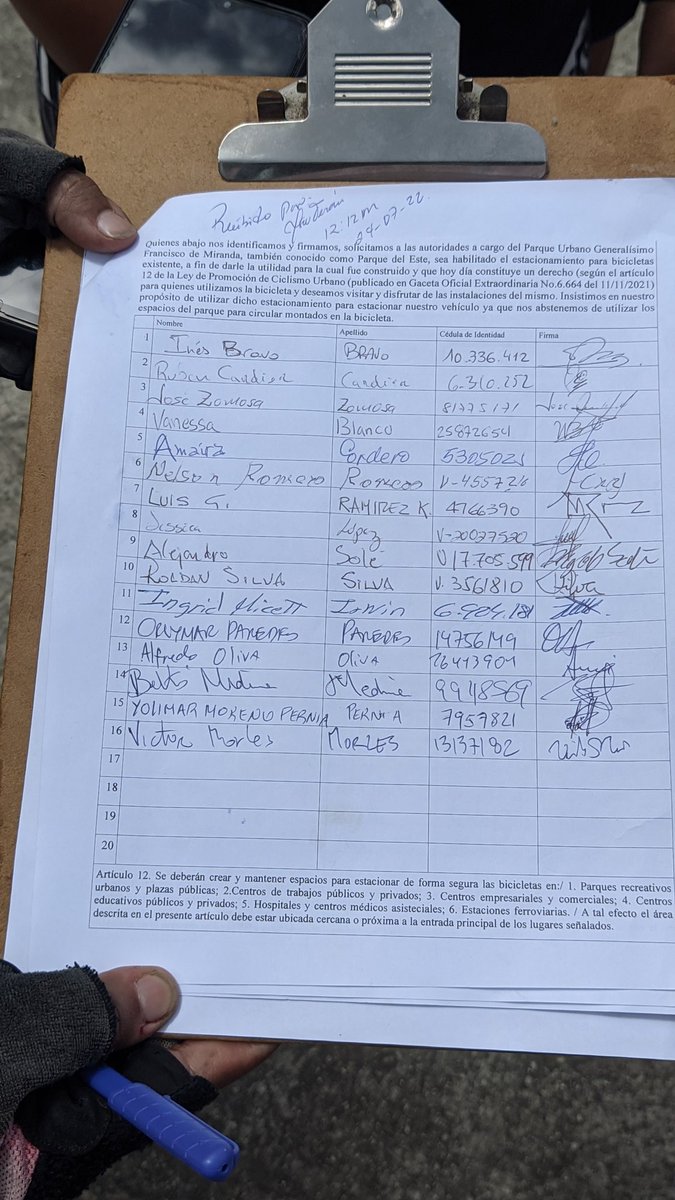 Recibido Por
12:12m
24-07-22.
Quienes abajo nos identificamos y firmamos, solicitamos a las autoridades a cargo del Parque Urbano Generalísimo
Francisco de Miranda, también conocido como Parque del Este, sea habilitado el estacionamiento para bicicletas
existente, a fin de darle la utilidad para la cual fue construido y que hoy día constituye un derecho (según el artículo
12 de la Ley de Promoción de Ciclismo Urbano (publicado en Gaceta Oficial Extraordinaria No.6.664 del 11/11/2021)
para quienes utilizamos la bicicleta y deseamos visitar y disfrutar de las instalaciones del mismo. Insistimos en nuestro
propósito de utilizar dicho estacionamiento para estacionar nuestro vehículo ya que nos abstenemos de utilizar los
espacios del parque para circular montados en la bicicleta.
Nombre Apellido Cédula de Identidad Firma
1 Inés Bravo BRAVO 10.336.412
2 Rubén Candica Candica 6.310.252
3 José Zomosa Zomosa 81775171
4 Vanessa Blanco 25872654
5 Amaira Cordero 5305021
6 Nelson Romero Romero V-4557216
7 LUIS G. RAMIREZ K. 4766390
8 Jessica López V-20027520
9 Alejandro Solé V17.705.599
10 ROLDAN SILVA SILVA V.3561810
11 Ingrid Irwin 6.904.181
12 ORLYMAR PAREDES PAREDES 14756149
13 Alfredo OLIVA OLIVA 26413901
14 Medina Medina 9948569
15 YOLIMAR MORENO PERNIA PERNIA 7957821
16 Victor Morles MORLES 13137182
17
18
19
20
Artículo 12. Se deberán crear y mantener espacios para estacionar de forma segura las bicicletas en:/ 1. Parques recreativos
urbanos y plazas públicas; 2.Centros de trabajos públicos y privados; 3. Centros empresariales y comerciales; 4. Centros
educativos públicos y privados; 5. Hospitales y centros médicos asisteciales; 6. Estaciones ferroviarias. / A tal efecto el área
descrita en el presente artículo debe estar ubicada cercana o próxima a la entrada principal de los lugares señalados.